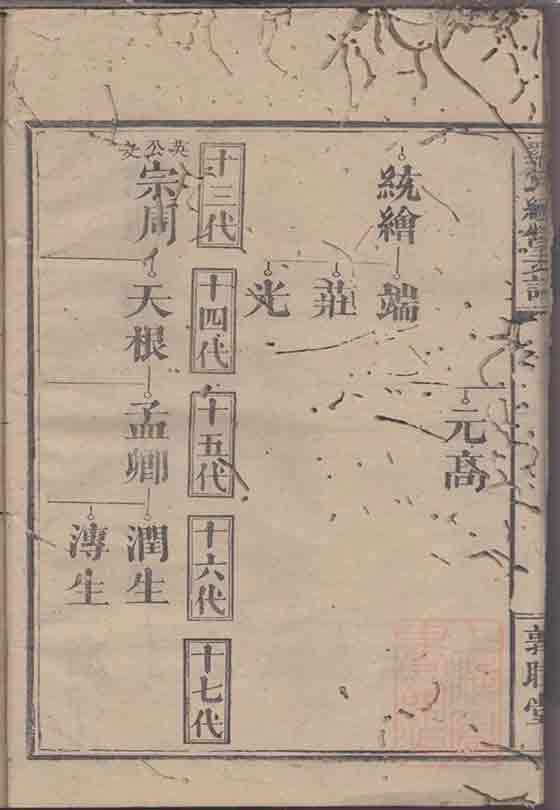 統繪
端
莊
光
元高
十三代
十四代
十五代
十六代
十七代
英公支
宗周
天根
孟卿
潤生
溥生
敦睦堂